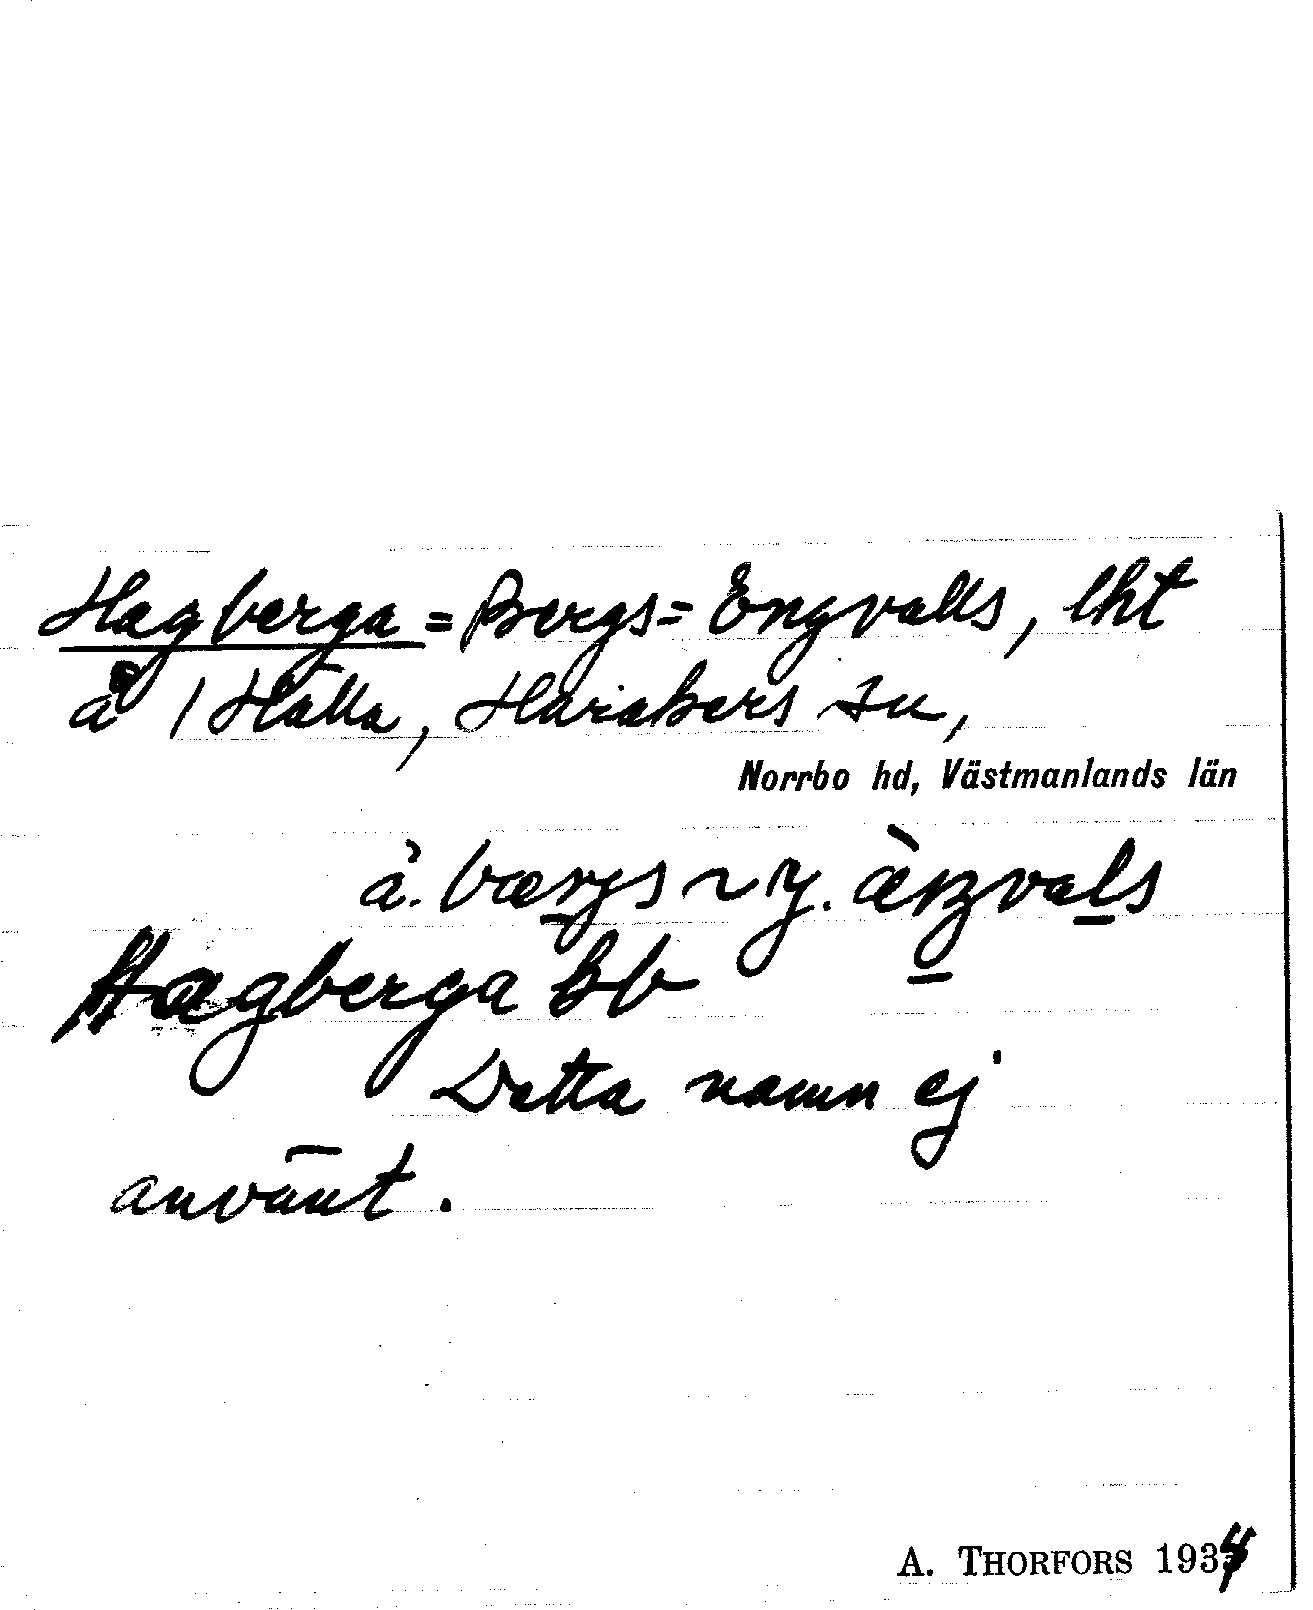 Hagberga = Bergs = Engvalls, lht
å 1 Hälla, Harakers sn,
Norrbo hd, Västmanlands län
Hagberga Bb
Detta namn ej
använt.
A. THORFORS 1934